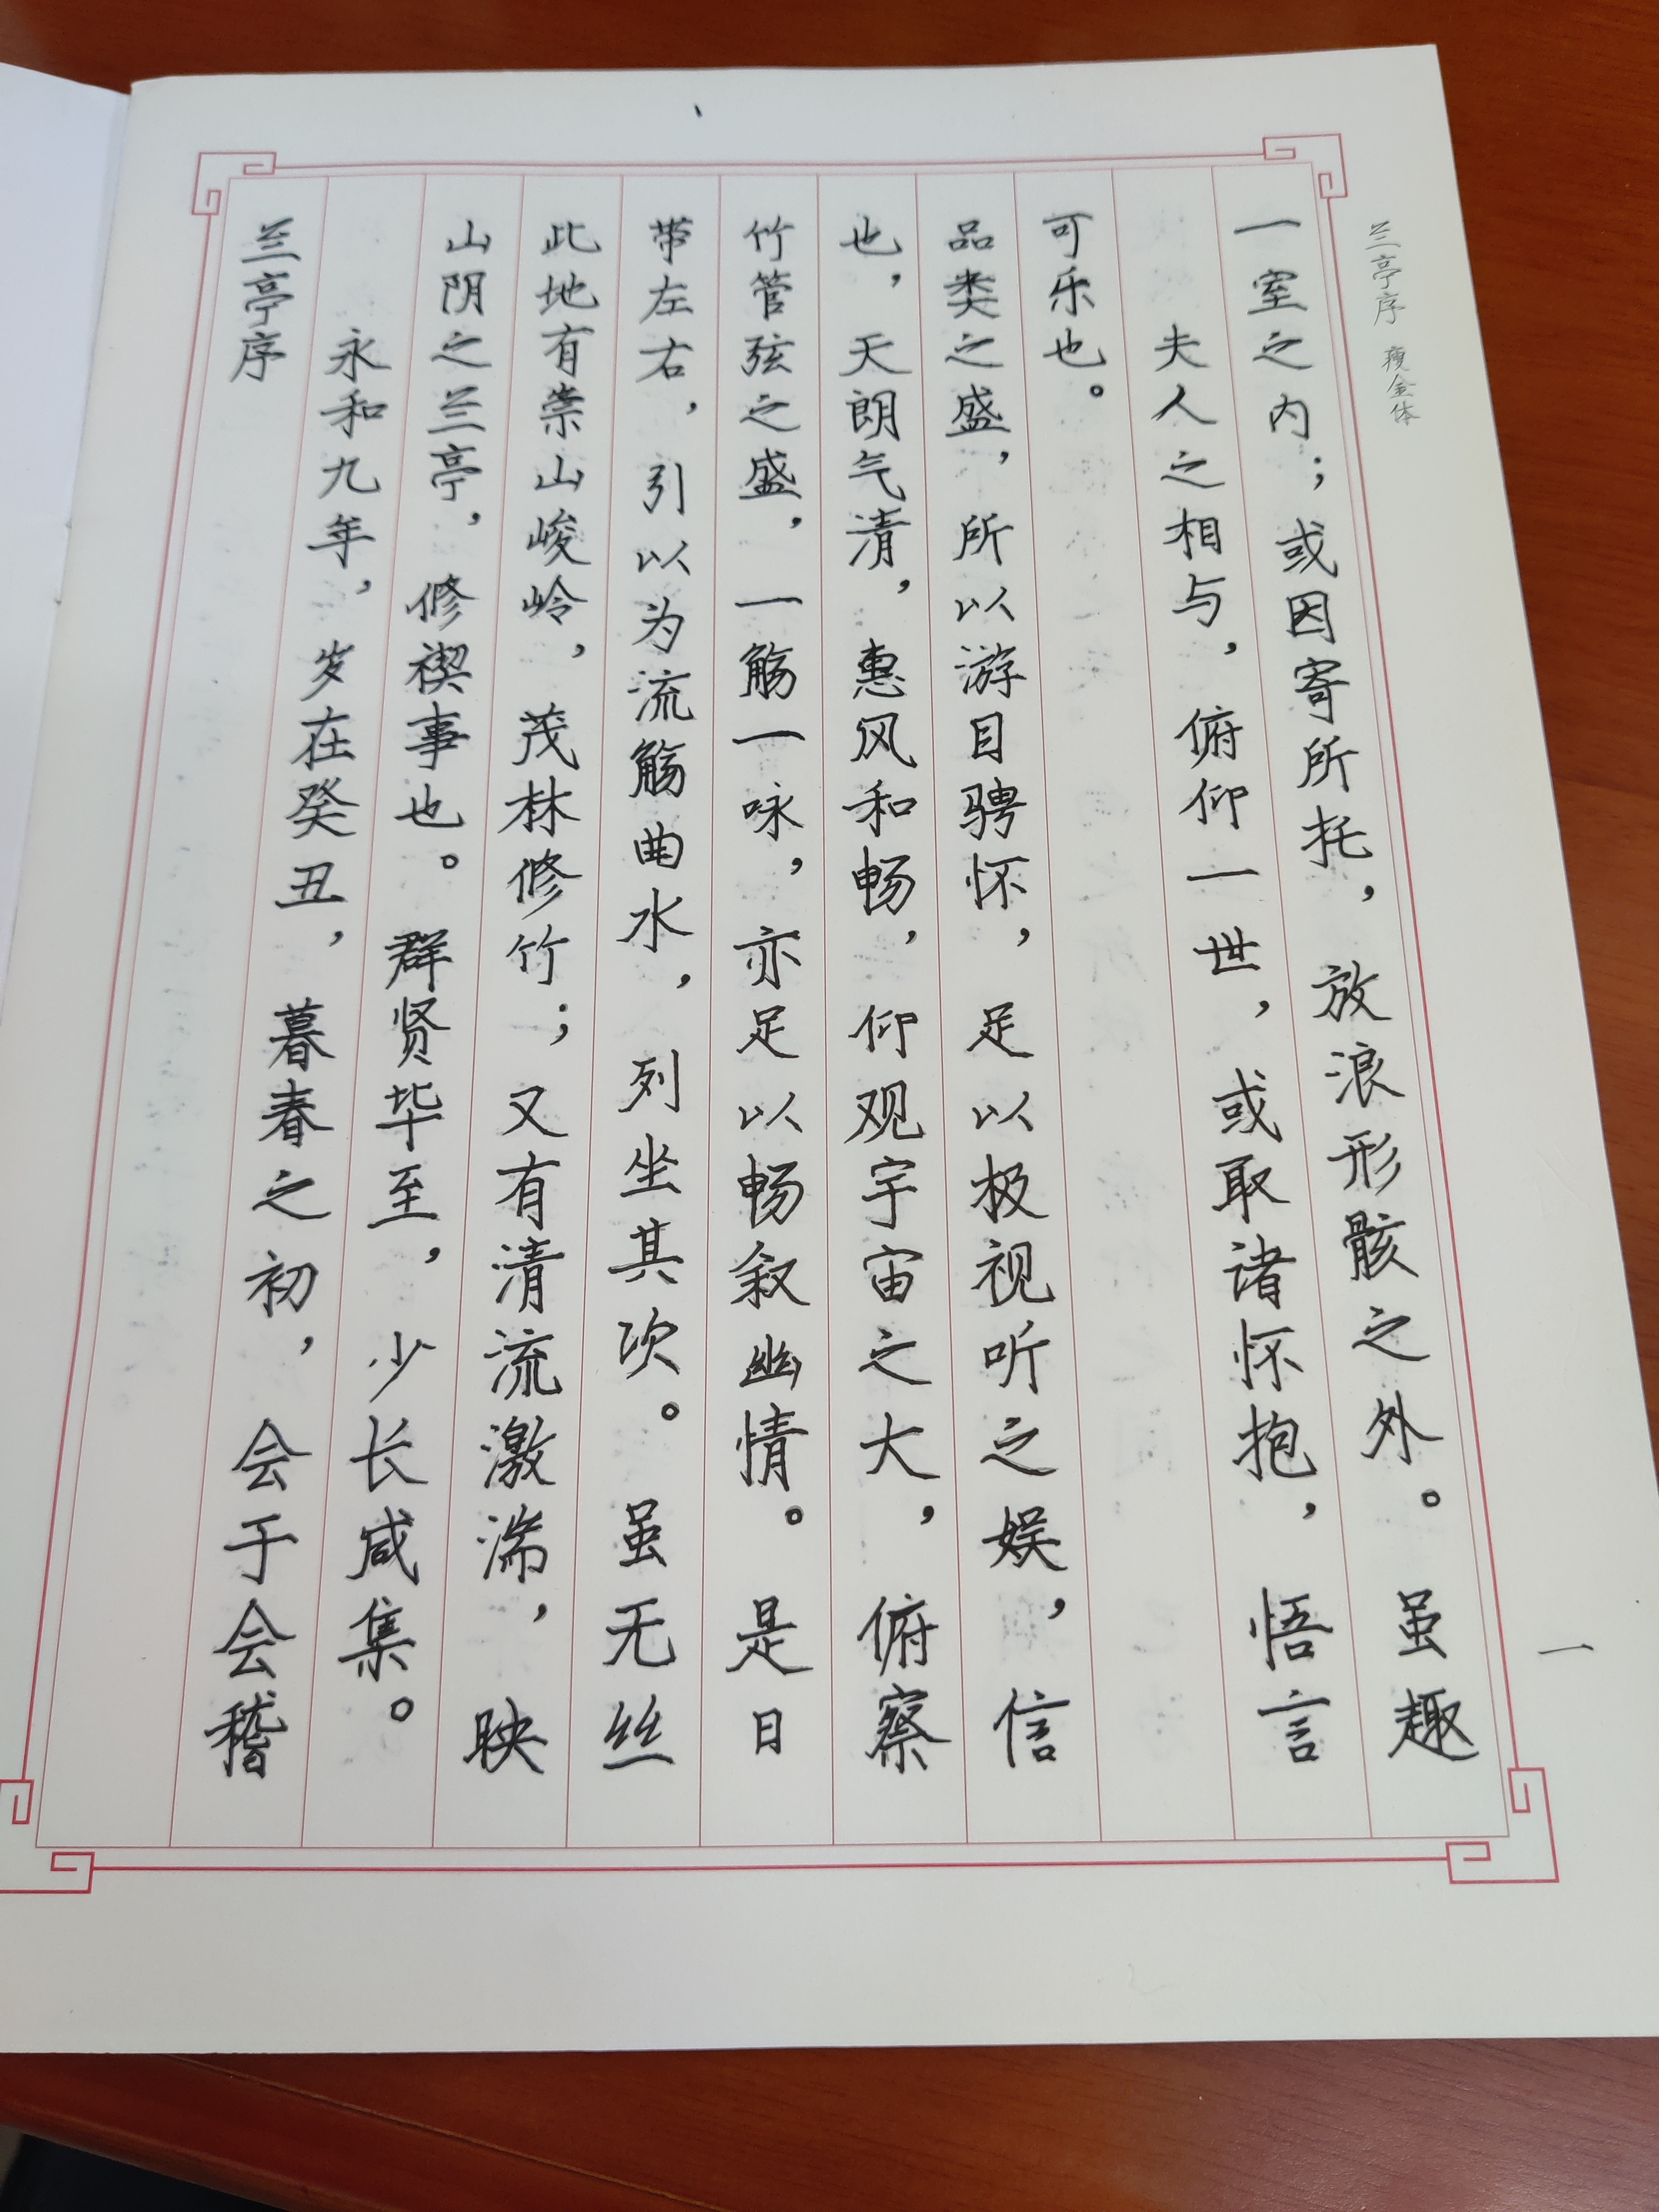 兰亭序
永和九年，岁在癸丑，暮春之初，会于会稽
山阴之兰亭，修禊事也。群贤毕至，少长咸集。
此地有崇山峻岭，茂林修竹；又有清流激湍，映
带左右，引以为流觞曲水，列坐其次。虽无丝
竹管弦之盛，一觞一咏，亦足以畅叙幽情。是日
也，天朗气清，惠风和畅，仰观宇宙之大，俯察
品类之盛，所以游目骋怀，足以极视听之娱，信
可乐也。
夫人之相与，俯仰一世，或取诸怀抱，悟言
一室之内；或因寄所托，放浪形骸之外。虽趣
兰亭序 瘦金体
一